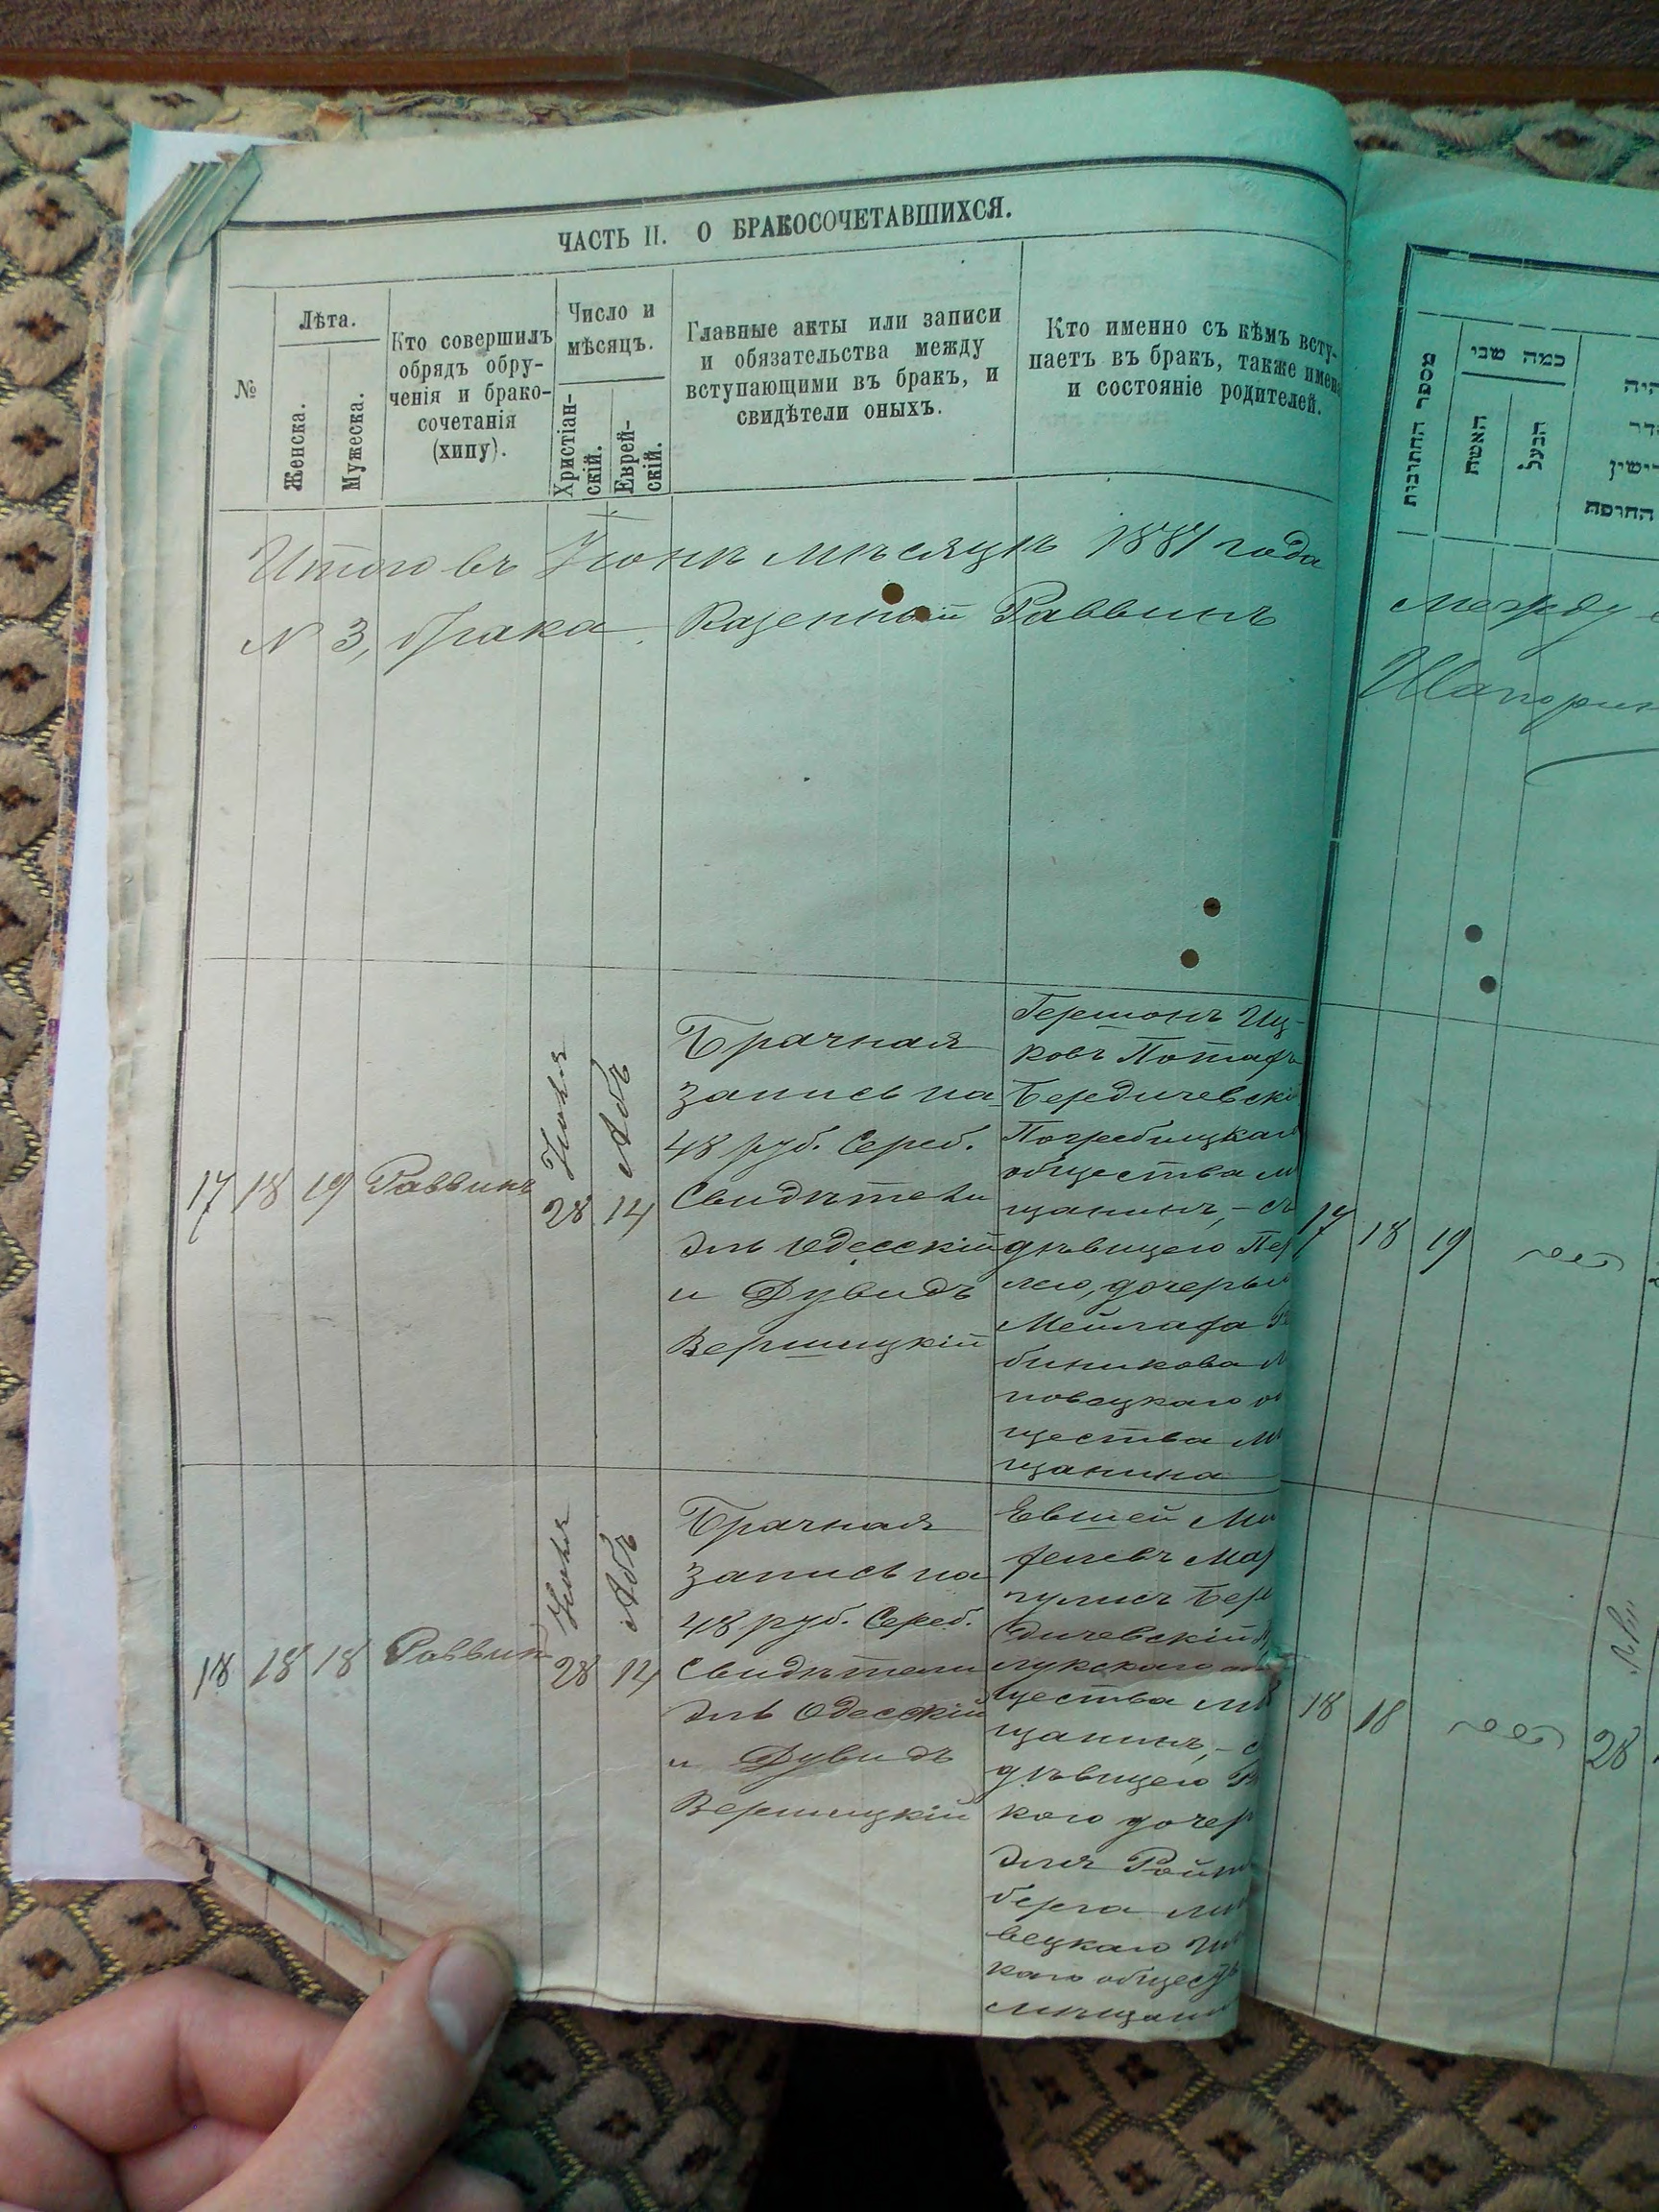 ЧАСТЬ II. О БРАКОСОЧЕТАВШИХСЯ.
№
Лѣта.
Женска.
Мужеска.
Кто совершилъ
обрядъ обру-
ченія и брако-
сочетанія
(хипу).
Число и
мѣсяцъ.
Христіан-
скій.
Еврей-
скій.
Главные акты или записи
и обязательства между
вступающими въ бракъ, и
свидѣтели оныхъ.
Кто именно съ кѣмъ всту-
паетъ въ бракъ, также имен
и состояніе родителей.
Итого въ Іюнѣ мѣсяцѣ 1881 года
№ 3, брака. Казенный Раввинъ
17
18
19
Раввинъ
Іюля
28
Абъ
14
Брачная
запись на
48 руб. Сереб.
Свидѣтели
Эль Одесскій
и Дувидъ
Вершицкій
Гершонъ Иц-
ковъ
Бердичевскі
Погребищкаго
общества м
щанинъ, - съ
дѣвицею Пер
лею, дочерью
биникова
повецкаго о
щества м
щанина
18
18
18
Раввинъ
Іюля
28
Абъ
14
Брачная
запись на
48 руб. Сереб.
Свидѣтели
Эль Одесскій
и Дувидъ
Вершицкій
Евшей
Мар
гулисъ Бер
дичевскій
щества м
щанинъ, - с
дѣвицею
кою дочер
берга
вецкаго
каго общест
мѣщани
מספר החתונות
כמה שני
האשה
הבעל
החופה
между
17
18
19
18
18
28